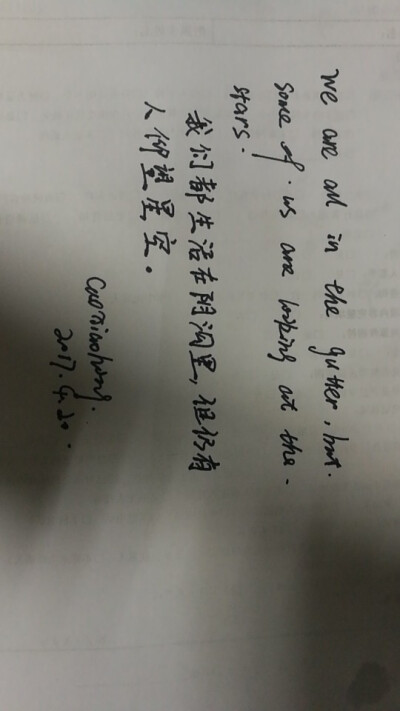 we are all in the gutter, but.
some of. us are looking at the.
stars.
我们都生活在阴沟里，但仍有
人仰望星空。
2017. 4. 20.